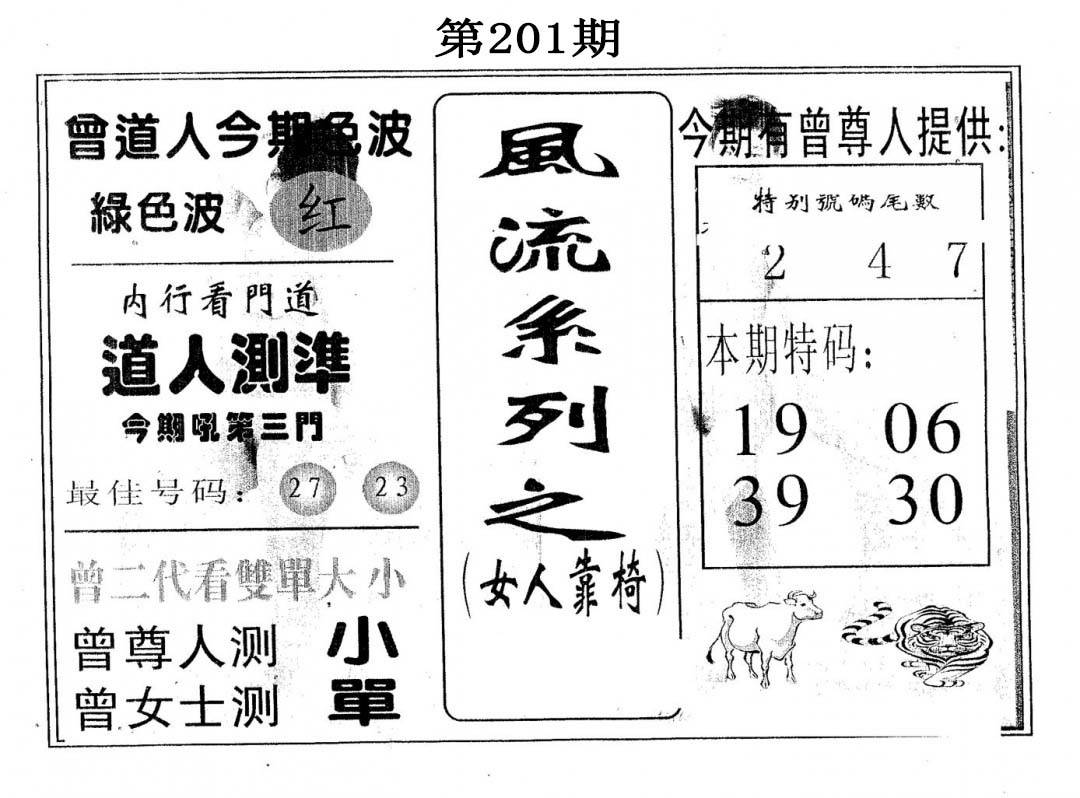 第201期
曾道人今期色波
綠色波 红
内行看門道
道人測準
今期吼第三門
最佳号码：27 23
曾二代看雙單大小
曾尊人测 小
曾女士测 單
風
流
系
列
之
(女人靠椅)
今期有曾尊人提供:
特别號碼尾數
2 4 7
本期特码:
19 06
39 30